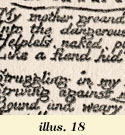 My mother groand
Into the dangerous
Helpless naked pi
Like a fiend hid
Struggling in my
Striving against
Bound and weary
illus. 18